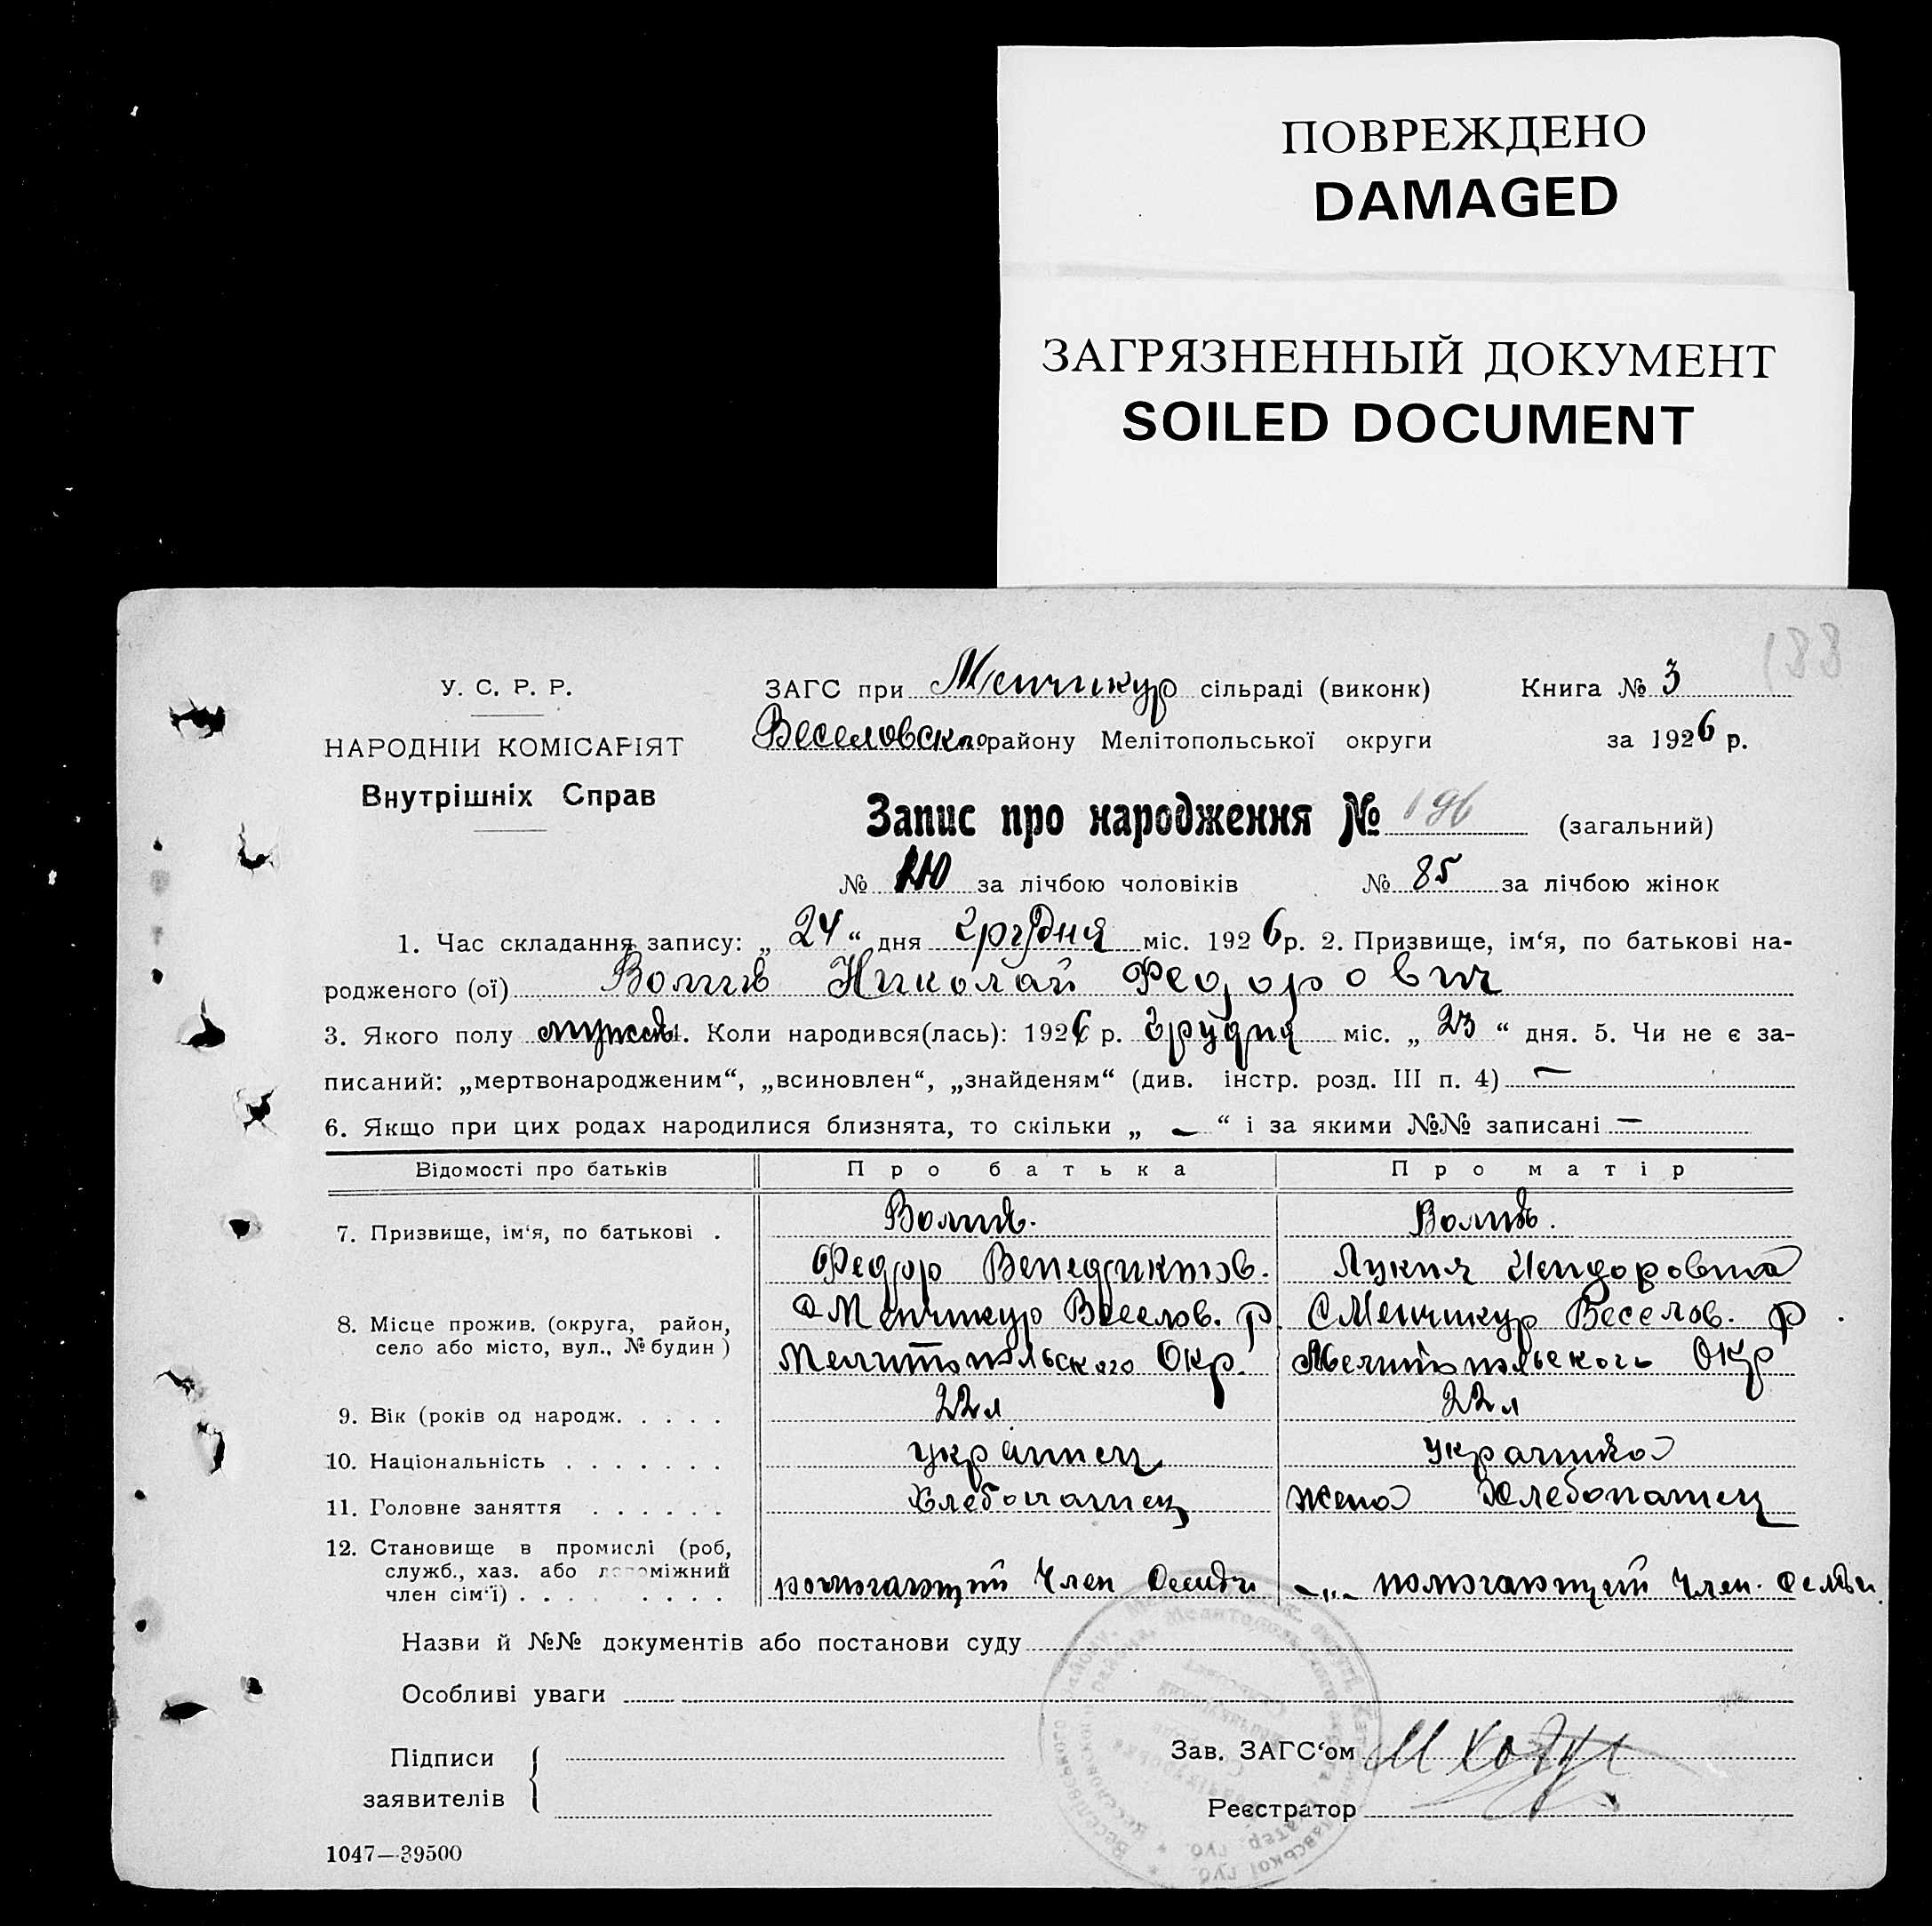 ПОВРЕЖДЕНО
DAMAGED
ЗАГРЯЗНЕННЫЙ ДОКУМЕНТ
SOILED DOCUMENT
188
У. С. Р. Р.
ЗАГС при Менчикур сільраді (виконк)
Книга № 3
НАРОДНІЙ КОМІСАРІЯТ
Веселовского району Мелітопольської округи
за 1926 р.
Внутрішніх Справ
Запис про народження № 196 (загальний)
№ 110 за лічбою чоловіків № 85 за лічбою жінок
1. Час складання запису: „24“ дня грудня міс. 1926 р. 2. Призвище, ім‘я, по батькові на-
родженого (ої) Николай Федорович
3. Якого полу мужск 4. Коли народився(лась): 1926 р. грудня міс. „23“ дня. 5. Чи не є за-
писаний: „мертвонародженим“, „всиновлен“, „знайденям“ (див. інстр. розд. III п. 4) —
6. Якщо при цих родах народилися близнята, то скільки „ — “ і за якими №№ записані —
Відомості про батьків Про батька Про матір
7. Призвище, ім‘я, по батькові .
Федор Венедиктов. Лукия
8. Місце прожив. (округа, район, с Менчикур Веселов. р. с Менчикур Веселов. р.
село або місто, вул., № будин) Мелитопольского Окр. Мелитопольского Окр
9. Вік (років од народж. . . . . 22 л 22 л
10. Національність . . . . . . . украинец украинка
11. Головне заняття . . . . . . Хлебопашец жена Хлебопашец
12. Становище в промислі (роб,
служб., хаз. або допоміжний
член сім‘ї) . . . . . . . . . помогающий член семьи —„— помогающий член. семьи
Назви й №№ документів або постанови суду
Особливі уваги
Підписи
заявителів
Зав. ЗАГС‘ом
Реєстратор
1047—39500